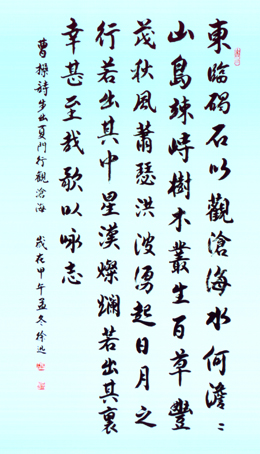 東臨碣石以觀滄海水何澹〻
山島竦峙樹木叢生百草豐
茂秋風蕭瑟洪波湧起日月之
行若出其中星漢燦爛若出其裏
幸甚至哉歌以咏志
曹操詩步出夏門行觀滄海 歲在甲午孟冬徐